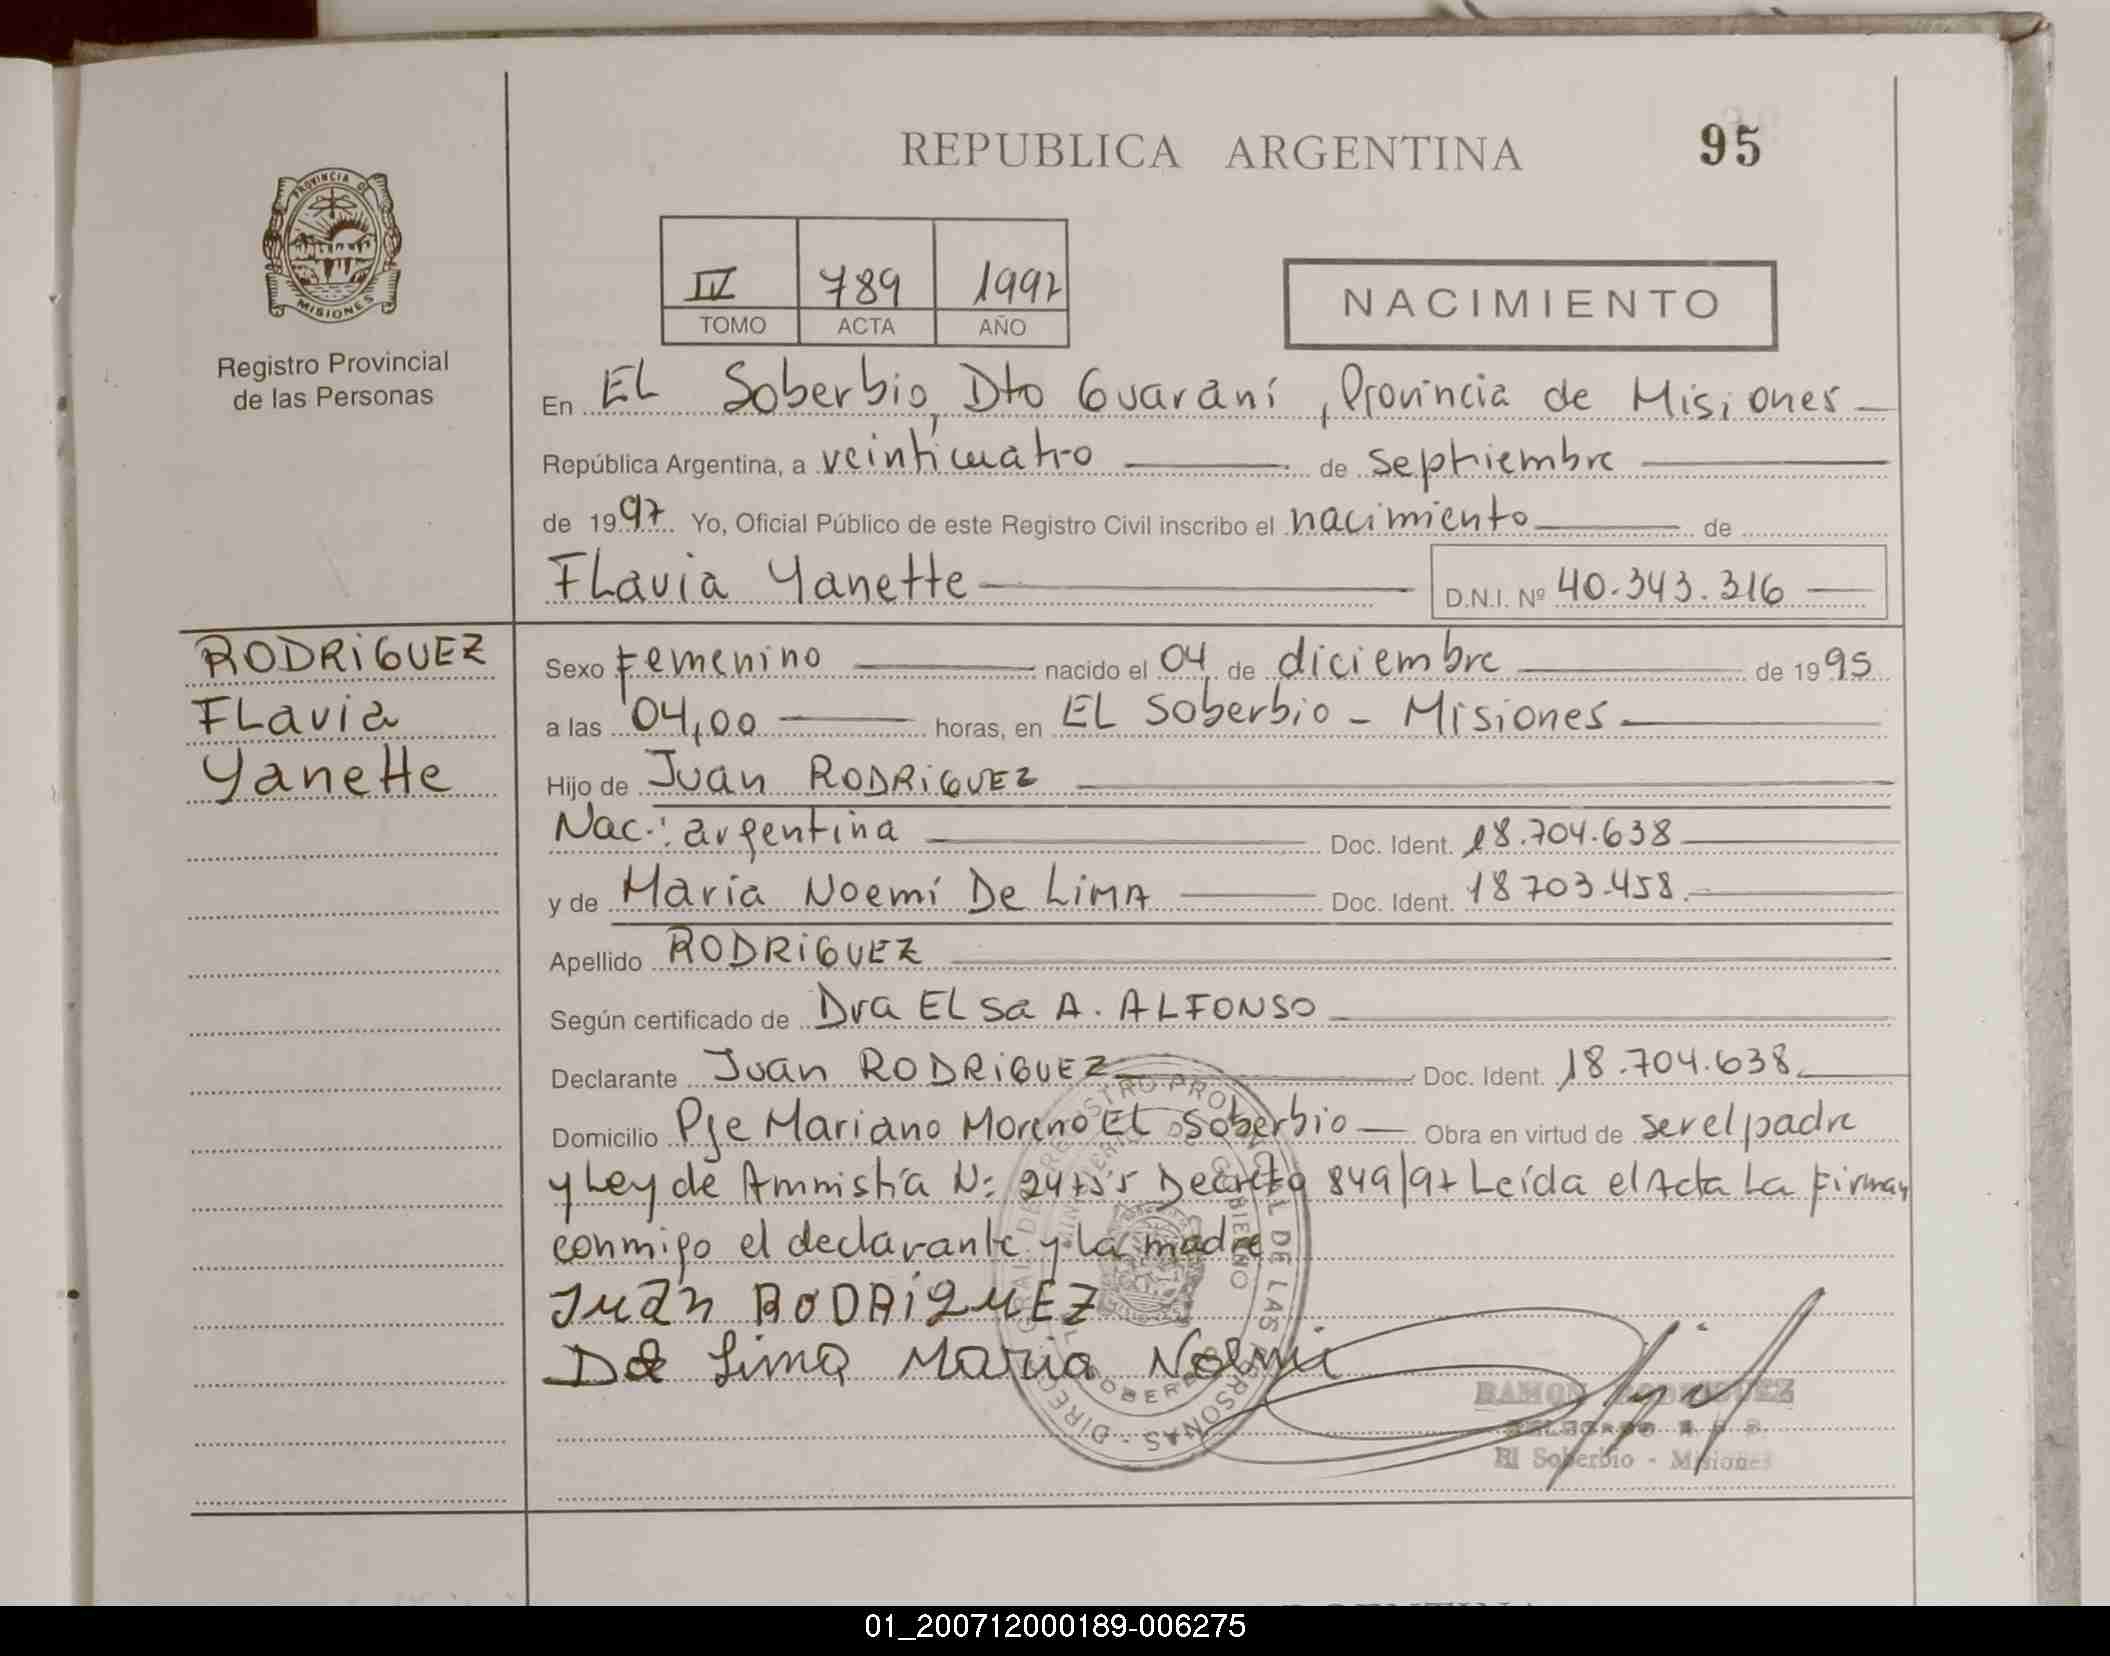 REPUBLICA ARGENTINA
95
PROVINCIA DE
MISIONES
Registro Provincial
de las Personas
IV 789 1997
TOMO ACTA AÑO
NACIMIENTO
En EL Soberbio, Dto Guaraní, Provincia de Misiones
República Argentina, a veinticuatro de septiembre
de 1997 Yo, Oficial Público de este Registro Civil inscribo el nacimiento de
FLavia Yanette D.N.I. Nº 40.343.316
RODRiGUEZ
FLavia
Yanette
Sexo Femenino nacido el 04 de diciembre de 1995
a las 04,00 horas, en EL Soberbio - Misiones
Hijo de Juan RODRiGUEZ
Nac.: argentina Doc. Ident. 18.704.638
y de Maria Noemí De LiMA Doc. Ident. 18703.458.
Apellido RODRiGUEZ
Según certificado de Dra ELsa A. ALFONSO
Declarante Juan RODRiGUEZ Doc. Ident. 18.704.638
Domicilio Pje Mariano Moreno EL Soberbio Obra en virtud de ser el padre
y Ley de Amnistía N: 24755 Decreto 849/97 Leída el Acta La Firman
conmigo el declarante y La madre
Juan RODRiGUEZ
De Lima Maria Noemi
RAMON RODRIGUEZ
El Soberbio - Misiones
01_200712000189-006275